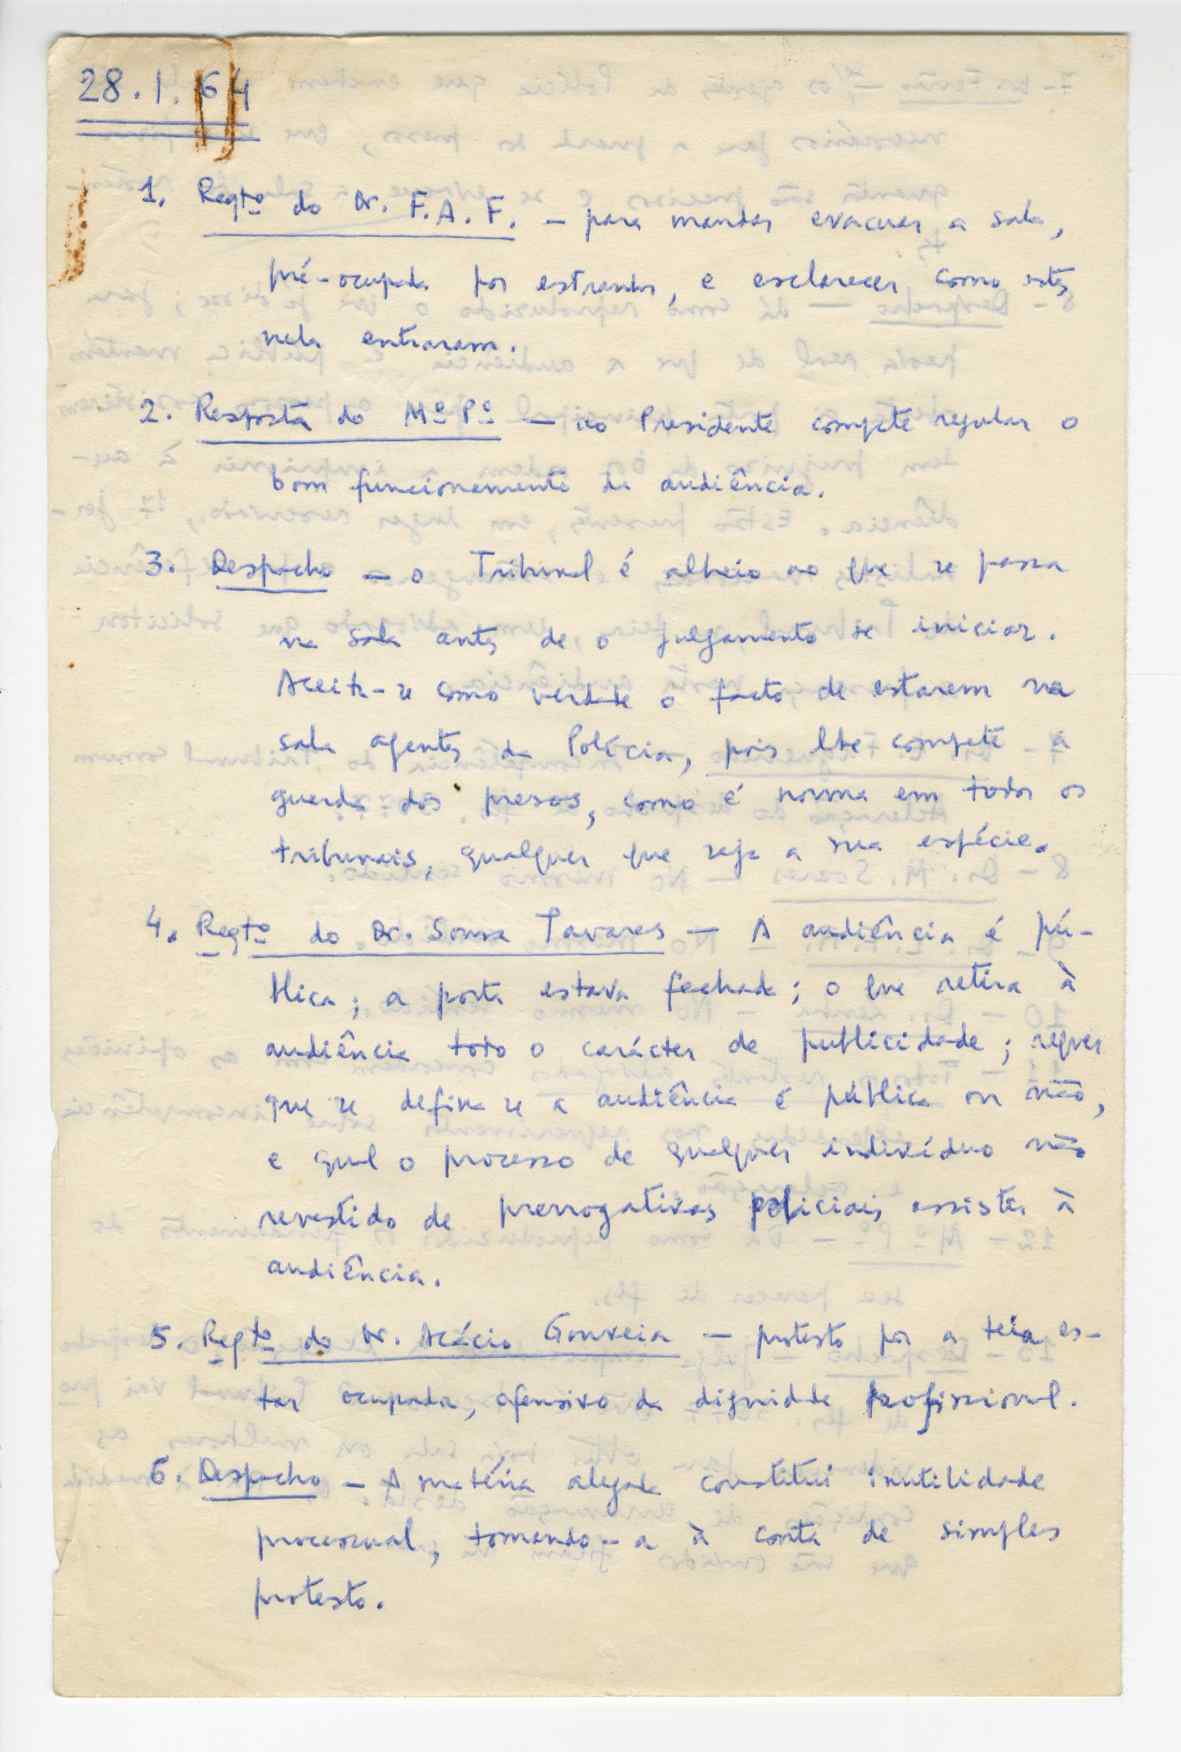 28.1.64
1. Reqtº do Dr. F.A.F. – para mandar evacuar a sala,
pré-ocupada por estranhos, e esclarecer como estes
nela entraram.
2. Resposta do Mº Pº – ao Presidente compete regular o
bom funcionamento da audiência.
3. Despacho – o Tribunal é alheio ao que se passa
na sala antes de o julgamento se iniciar.
Aceita-se como verdade o facto de estarem na
sala agentes da Polícia, pois lhe compete a
guarda dos presos, como é norma em todos os
tribunais, qualquer que seja a sua espécie.
4. Reqtº do Dr. Sousa Tavares – A audiência é pú-
blica; a porta estava fechada; o que retira à
audiência todo o carácter de publicidade; requer
que se defina se a audiência é pública ou não,
e qual o processo de qualquer indivíduo não
revestido de prerrogativas policiais assistir à
audiência.
5. Reqtº do Dr. Acácio Gouveia – protesto por a teia es-
tar ocupada, ofensivo da dignidade profissional.
6. Despacho – A matéria alegada constitui inutilidade
processual, tomando-a à conta de simples
protesto.